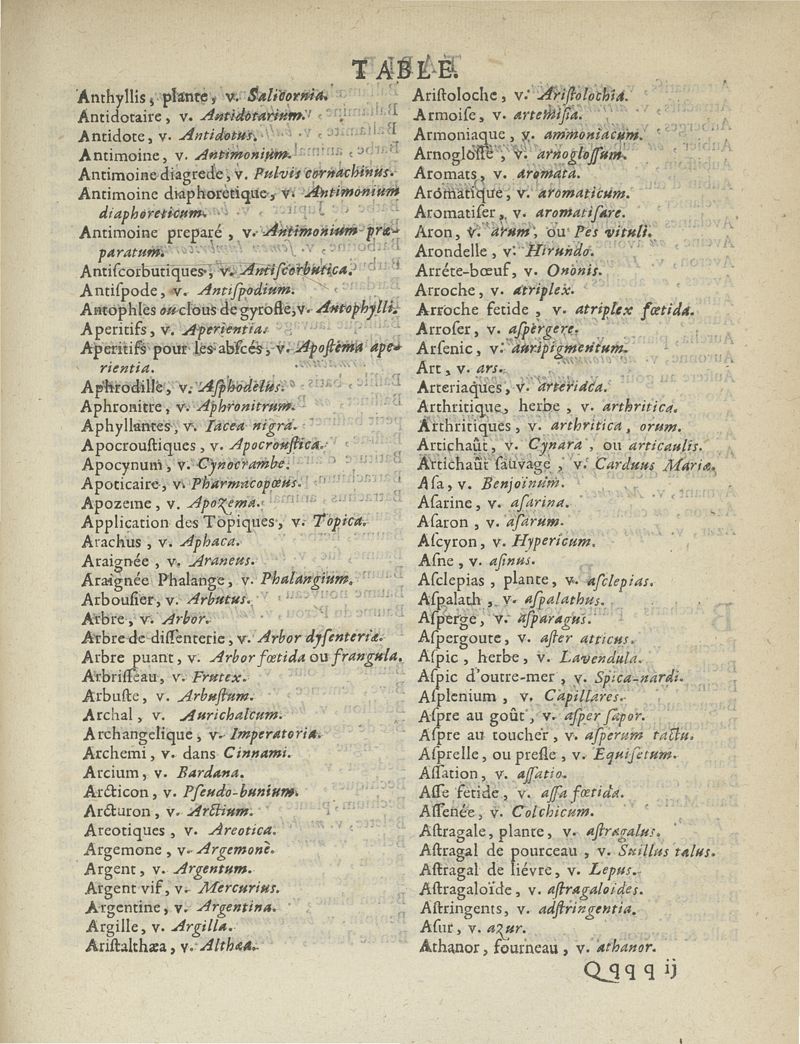 TABLE.
Anthyllis, plante, v. Salicornia.
Antidotaire, v. Antidotarium.
Antidote, v. Antidotus.
Antimoine, v. Antimonium.
Antimoine diagrede, v. Pulvis cornachinus.
Antimoine diaphoretique, v. Antimonium
diaphoreticum.
Antimoine preparé, v. Antimonium præ-
paratum.
Antiſcorbutiques, v. Antiſcorbutica.
Antiſpode, v. Antiſpodium.
Antophles ou clous de gyrofle, v. Antophylli.
Aperitifs, v. Aperientia.
Aperitifs pour les abſcés, v. Apoſtema ape-
rientia.
Aphrodille, v. Aſphodelus.
Aphronitre, v. Aphronitrum.
Aphyllantes, v. Iacea nigra.
Apocrouſtiques, v. Apocrouſtica.
Apocynum, v. Cynocrambe.
Apoticaire, v. Pharmacopœus.
Apozeme, v. Apozema.
Application des Topiques, v. Topica.
Arachus, v. Aphaca.
Araignée, v. Araneus.
Araignée Phalange, v. Phalangium.
Arbouſier, v. Arbutus.
Arbre, v. Arbor.
Arbre de diſſenterie, v. Arbor dyſenteriæ.
Arbre puant, v. Arbor fœtida ou frangula.
Arbriſſeau, v. Frutex.
Arbuſte, v. Arbuſtum.
Archal, v. Aurichalcum.
Archangelique, v. Imperatoria.
Archemi, v. dans Cinnami.
Arcium, v. Bardana.
Arcticon, v. Pſeudo-bunium.
Arcturon, v. Arctium.
Areotiques, v. Areotica.
Argemone, v. Argemone.
Argent, v. Argentum.
Argent vif, v. Mercurius.
Argentine, v. Argentina.
Argille, v. Argilla.
Ariſtalthæa, v. Althæa.
Ariſtoloche, v. Ariſtolochia.
Armoiſe, v. artemiſia.
Armoniaque, v. ammoniacum.
Arnogloſſe, v. arnogloſſum.
Aromats, v. aromata.
Aromatique, v. aromaticum.
Aromatiſer, v. aromatiſare.
Aron, v. arum, ou Pes vituli.
Arondelle, v. Hirundo.
Arréte-bœuf, v. Ononis.
Arroche, v. atriplex.
Arroche fetide, v. atriplex fœtida.
Arroſer, v. aſpergere.
Arſenic, v. auripigmentum.
Art, v. ars.
Arteriaques, v. arteriaca.
Arthritique, herbe, v. arthritica.
Arthritiques, v. arthritica, orum.
Artichaût, v. Cynara, ou articaulis.
Artichaût ſauvage, v. Carduus Mariæ.
Aſa, v. Benjoinum.
Aſarine, v. aſarina.
Aſaron, v. aſarum.
Aſcyron, v. Hypericum.
Aſne, v. aſinus.
Aſclepias, plante, v. aſclepias.
Aſpalath, v. aſpalathus.
Aſperge, v. aſparagus.
Aſpergoute, v. aſter atticus.
Aſpic, herbe, v. Lavendula.
Aſpic d'outre-mer, v. Spica-nardi.
Aſplenium, v. Capillares.
Aſpre au goût, v. aſper ſapor.
Aſpre au toucher, v. aſperum tactu.
Aſprelle, ou preſle, v. Equiſetum.
Aſſation, v. aſſatio.
Aſſe fetide, v. aſſa fœtida.
Aſſenée, v. Colchicum.
Aſtragale, plante, v. aſtragalus.
Aſtragal de pourceau, v. Suillus talus.
Aſtragal de liévre, v. Lepus.
Aſtragaloïde, v. aſtragaloides.
Aſtringents, v. adſtringentia.
Aſur, v. azur.
Athanor, fourneau, v. athanor.
Qqqq ij